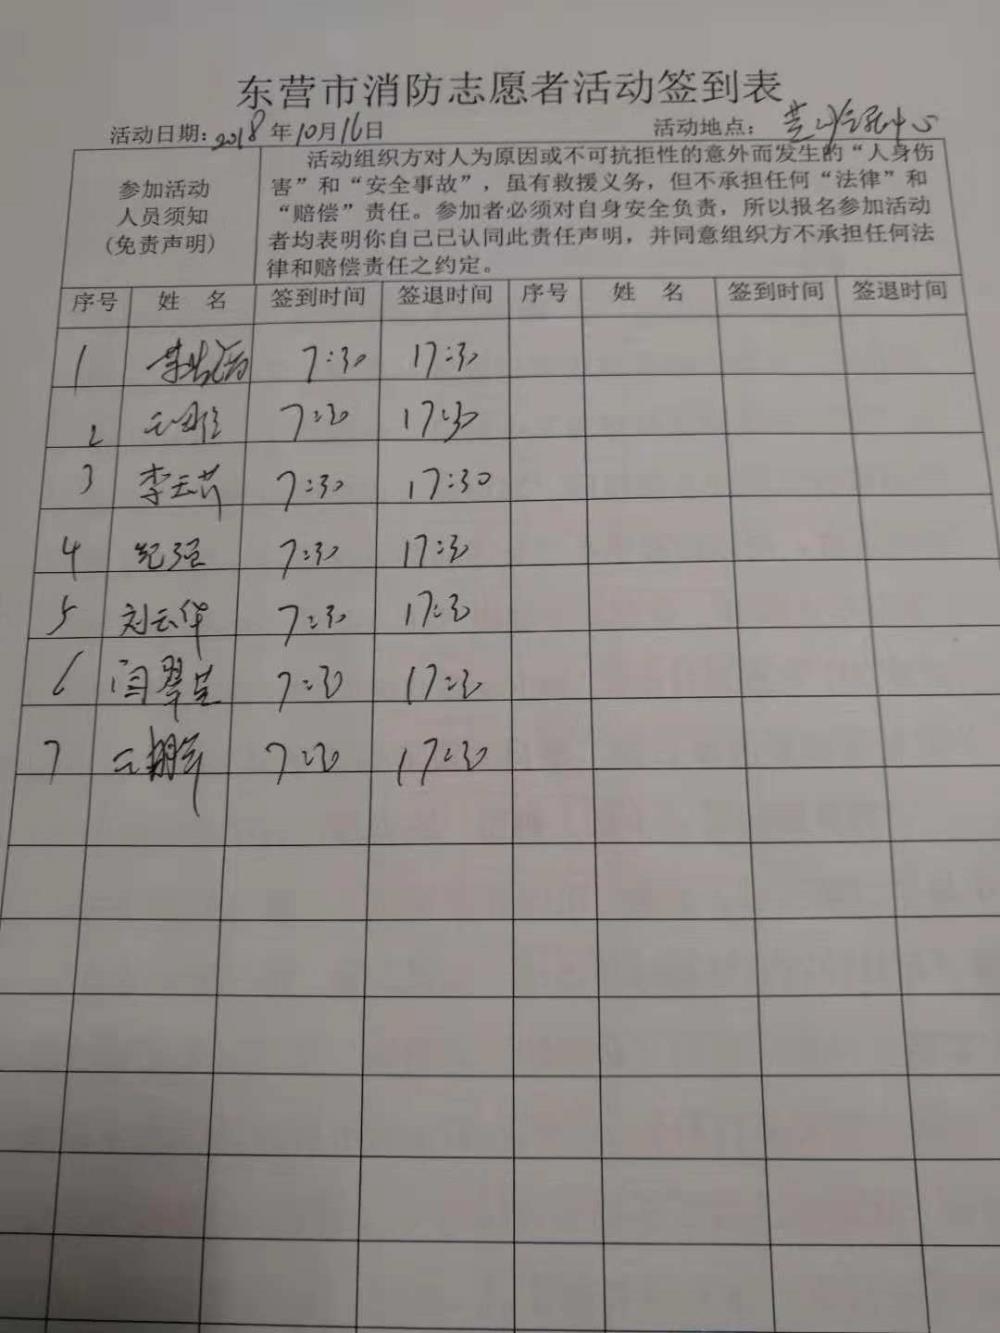 东营市消防志愿者活动签到表
活动日期：2018年10月16日 活动地点：
参加活动
人员须知
(免责声明)
活动组织方对人为原因或不可抗拒性的意外而发生的“人身伤
害”和“安全事故”，虽有救援义务，但不承担任何“法律”和
“赔偿”责任。参加者必须对自身安全负责，所以报名参加活动
者均表明你自己已认同此责任声明，并同意组织方不承担任何法
律和赔偿责任之约定。
序号 姓名 签到时间 签退时间 序号 姓名 签到时间 签退时间
1 7:30 17:30
2 7:30 17:30
3 李云芹 7:30 17:30
4 纪强 7:30 17:30
5 刘云华 7:30 17:30
6 闫翠 7:30 17:30
7 7:30 17:30